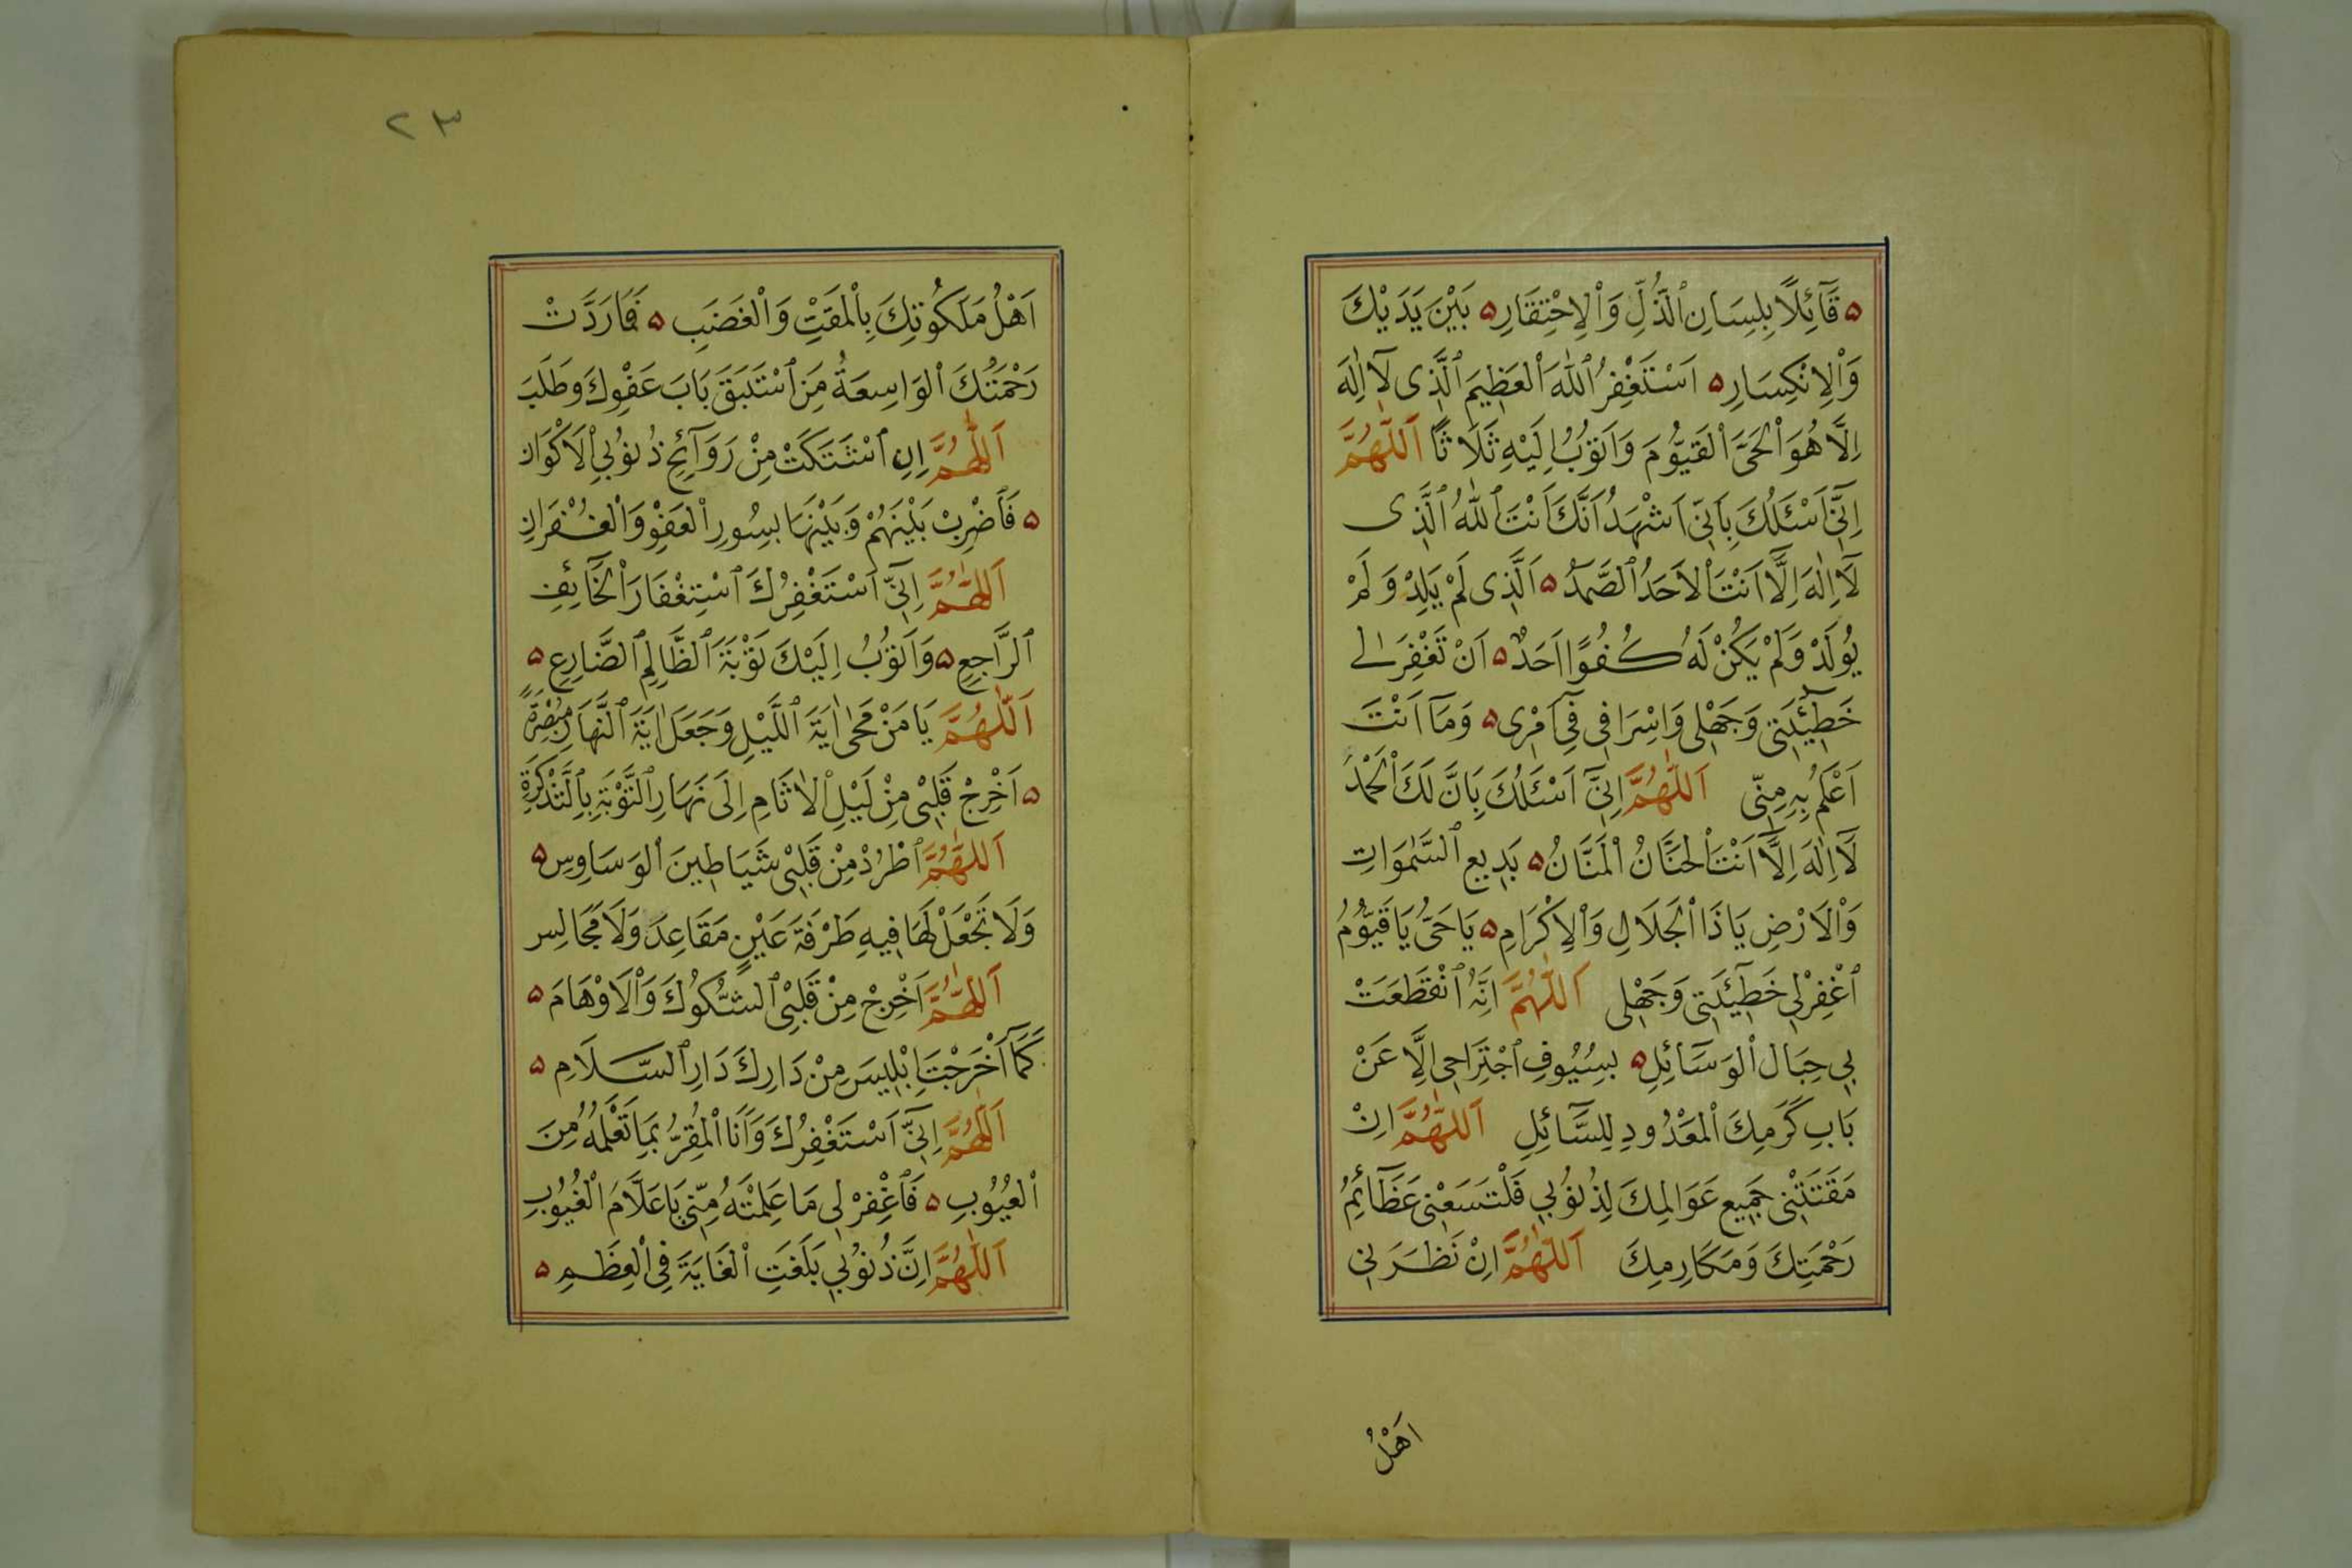 ۵ قَآئِلًا بِلِسَانِ ٱلذُّلِّ وَٱلْاِحْتِقَارِ ۵ بَيْنَ يَدَيْكَ
وَٱلْاِنْكِسَارِ ۵ اَسْتَغْفِرُ ٱللّٰهَ ٱلْعَظِيمَ ٱلَّذِى لَآ اِلٰهَ
اِلَّا هُوَ ٱلْحَىَّ ٱلْقَيُّومَ وَاَتُوبُ اِلَيْهِ ثَلَاثًا اَللّٰهُمَّ
اِنِّىٓ اَسْئَلُكَ بِاَنِّىٓ اَشْهَدُ اَنَّكَ اَنْتَ ٱللّٰهُ ٱلَّذِى
لَآ اِلٰهَ اِلَّآ اَنْتَ ٱلْاَحَدُ ٱلصَّمَدُ ۵ اَلَّذِى لَمْ يَلِدْ وَلَمْ
يُولَدْ وَلَمْ يَكُنْ لَهُ كُفُوًا اَحَدٌ ۵ اَنْ تَغْفِرَ لِى
خَطِٓيئَتِى وَجَهْلِى وَاِسْرَافِى فِىٓ اَمْرِى ۵ وَمَآ اَنْتَ
اَعْلَمُ بِهِ مِنِّى اَللّٰهُمَّ اِنِّىٓ اَسْئَلُكَ بِاَنَّ لَكَ ٱلْحَمْدَ
لَآ اِلٰهَ اِلَّآ اَنْتَ ٱلْحَنَّانُ ٱلْمَنَّانُ ۵ بَدِيعِ ٱلسَّمٰوَاتِ
وَٱلْاَرْضِ يَا ذَا ٱلْجَلَالِ وَٱلْاِكْرَامِ ۵ يَا حَىُّ يَا قَيُّومُ
ٱغْفِرْ لِى خَطِٓيئَتِى وَجَهْلِى اَللّٰهُمَّ اِنَّهُ ٱنْقَطَعَتْ
بِى حِبَالُ ٱلْوَسَآئِلِ ۵ بِسُيُوفِ ٱجْتِرَاحِى اِلَّا عَنْ
بَابِ كَرَمِكَ ٱلْمَعْدُودِ لِلسَّآئِلِ اَللّٰهُمَّ اِنْ
مَقَتَتْنِى جَمِيع عَوَالِمِكَ لِذُنُوبِى فَلْتَسَعْنِى عَظَآئِمُ
رَحْمَتِكَ وَمَكَارِمِكَ اَللّٰهُمَّ اِنْ نَظَرَنِى
اَهْلُ
٢٣
اَهْلُ مَلَكُوتِكَ بِالْمَقْتِ وَالْغَضَبِ ۵ فَمَا رَدَّتْ
رَحْمَتُكَ ٱلْوَاسِعَةُ مَنِ ٱسْتَبَقَ بَابَ عَفْوِكَ وَطَلَبَ
اَللّٰهُمَّ اِنِ ٱشْتَكَتْ مِنْ رَوَآئِحِ ذُنُوبِى ٱلْاَكْوَانِ
۵ فَٱضْرِبْ بَيْنَهُمْ وَبَيْنَهَا بِسُورِ ٱلْعَفْوِ وَٱلْغُفْرَانِ
اَللّٰهُمَّ اِنِّىٓ اَسْتَغْفِرُكَ ٱسْتِغْفَارَ ٱلْخَآئِفِ
ٱلرَّاجِعِ ۵ وَاَتُوبُ اِلَيْكَ تَوْبَةَ ٱلظَّالِمِ ٱلضَّارِعِ ۵
اَللّٰهُمَّ يَا مَنْ مَحٰى اٰيَةَ ٱللَّيْلِ وَجَعَلَ اٰيَةَ ٱلنَّهَارِ مُبْصِرَةً
۵ اَخْرِجْ قَلْبِى مِنْ لَيْلِ ٱلْاٰثَامِ اِلَى نَهَارِ ٱلتَّوْبَةِ بِالتَّذْكِرَةِ
اَللّٰهُمَّ ٱطْرُدْ مِنْ قَلْبِى شَيَاطِينَ ٱلْوَسَاوِسِ ۵
وَلَا تَجْعَلْ لَهَا فِيهِ طَرْفَةَ عَيْنٍ مَقَاعِدَ وَلَا مَجَالِس
اَللّٰهُمَّ اَخْرِجْ مِنْ قَلْبِى ٱلشُّكُوكَ وَٱلْاَوْهَامَ ۵
كَمَآ اَخْرَجْتَ اِبْلِيسَ مِنْ دَارِكَ دَارِ ٱلسَّلَامِ ۵
اَللّٰهُمَّ اِنِّىٓ اَسْتَغْفِرُكَ وَاَنَا ٱلْمُقِرُّ بِمَا تَعْلَمُهُ مِنَ
ٱلْعُيُوبِ ۵ فَٱغْفِرْ لِى مَا عَلِمْتَهُ مِنِّى يَا عَلَّامَ ٱلْغُيُوبِ
اَللّٰهُمَّ اِنَّ ذُنُوبِى بَلَغَتِ ٱلْغَايَةَ فِى ٱلْعِظَمِ ۵